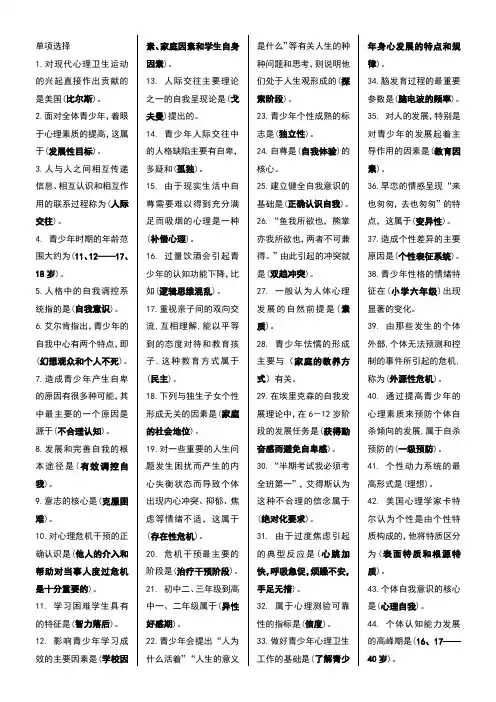 单项选择
1.对现代心理卫生运动
的兴起直接作出贡献的
是美国(比尔斯)。
2.面对全体青少年,着眼
于心理素质的提高,这属
于(发展性目标)。
3.人与人之间相互传递
信息、相互认识和相互作
用的联系过程称为(人际
交往)。
4. 青少年时期的年龄范
围大约为(11、12——17、
18岁)。
5.人格中的自我调控系
统指的是(自我意识)。
6.艾尔肯指出,青少年的
自我中心有两个特点,即
(幻想观众和个人不死)。
7.造成青少年产生自卑
的原因有很多种可能,其
中最主要的一个原因是
源于(不合理认知)。
8.发展和完善自我的根
本途径是(有效调控自
我)。
9.意志的核心是(克服困
难)。
10.对心理危机干预的正
确认识是(他人的介入和
帮助对当事人度过危机
是十分重要的)。
11. 学习困难学生具有
的特征是(智力落后)。
12. 影响青少年学习成
效的主要因素是(学校因
素、家庭因素和学生自身
因素)。
13. 人际交往主要理论
之一的自我呈现论是(戈
夫曼)提出的。
14. 青少年人际交往中
的人格缺陷主要有自卑,
多疑和(孤独)。
15. 由于现实生活中自
尊需要难以得到充分满
足而吸烟的心理是一种
(补偿心理)。
16. 过量饮酒会引起青
少年的认知功能下降,比
如(逻辑思维混乱)。
17.重视亲子间的双向交
流,互相理解,能以平等
到的态度对待和教育孩
子.这种教育方式属于
(民主)。
18.下列与独生子女个性
形成无关的因素是(家庭
的社会地位)。
19.对一些重要的人生问
题发生困扰而产生的内
心失衡状态而导致个体
出现内心冲突、抑郁、焦
虑等情绪不适, 这属于
(存在性危机)。
20. 危机干预最主要的
阶段是(治疗干预阶段)。
21. 初中二、三年级到高
中一、二年级属于(异性
好感期)。
22.青少年会提出“人为
什么活着”“人生的意义
是什么”等有关人生的种
种问题和思考,则说明他
们处于人生观形成的(探
索阶段)。
23.青少年个性成熟的标
志是(独立性)。
24.自尊是(自我体验)的
核心。
25.建立健全自我意识的
基础是(正确认识自我)。
26. “鱼我所欲也, 熊掌
亦我所欲也,两者不可兼
得。”由此引起的冲突就
是(双趋冲突)。
27. 一般认为人体心理
发展的自然前提是(素
质)。
28. 青少年怯懦的形成
主要与(家庭的教养方
式)有关。
29.在埃里克森的自我发
展理论中,在6-12岁阶
段的发展任务是(获得勤
奋感而避免自卑感)。
30.“半期考试我必须考
全班第一”,艾得斯认为
这种不合理的信念属于
(绝对化要求)。
31. 由于过度焦虑引起
的典型反应是(心跳加
快,呼吸急促,烦躁不安,
手足无措)。
32. 属于心理测验可靠
性的指标是(信度)。
33.做好青少年心理卫生
工作的基础是(了解青少
年身心发展的特点和规
律)。
34.脑发育过程的最重要
参数是(脑电波的频率)。
35. 对人的发展,特别是
对青少年的发展起着主
导作用的因素是(教育因
素)。
36.早恋的情感呈现“来
也匆匆, 去也匆匆”的特
点, 这属于(变异性)。
37.造成个性差异的主要
原因是(个性表征系统)。
38.青少年性格的情绪特
征在(小学六年级)出现
显著的变化。
39. 由那些发生的个体
外部,个体无法预测和控
制的事件所引起的危机,
称为(外源性危机)。
40. 通过提高青少年的
心理素质来预防个体自
杀倾向的发展,属于自杀
预防的(一级预防)。
41. 个性动力系统的最
高形式是(理想)。
42. 美国心理学家卡特
尔认为个性是由个性特
质构成的,他将特质区分
为(表面特质和根源特
质)。
43.个体自我意识的核心
是(心理自我)。
44. 个体认知能力发展
的高峰期是(16、17——
40岁)。